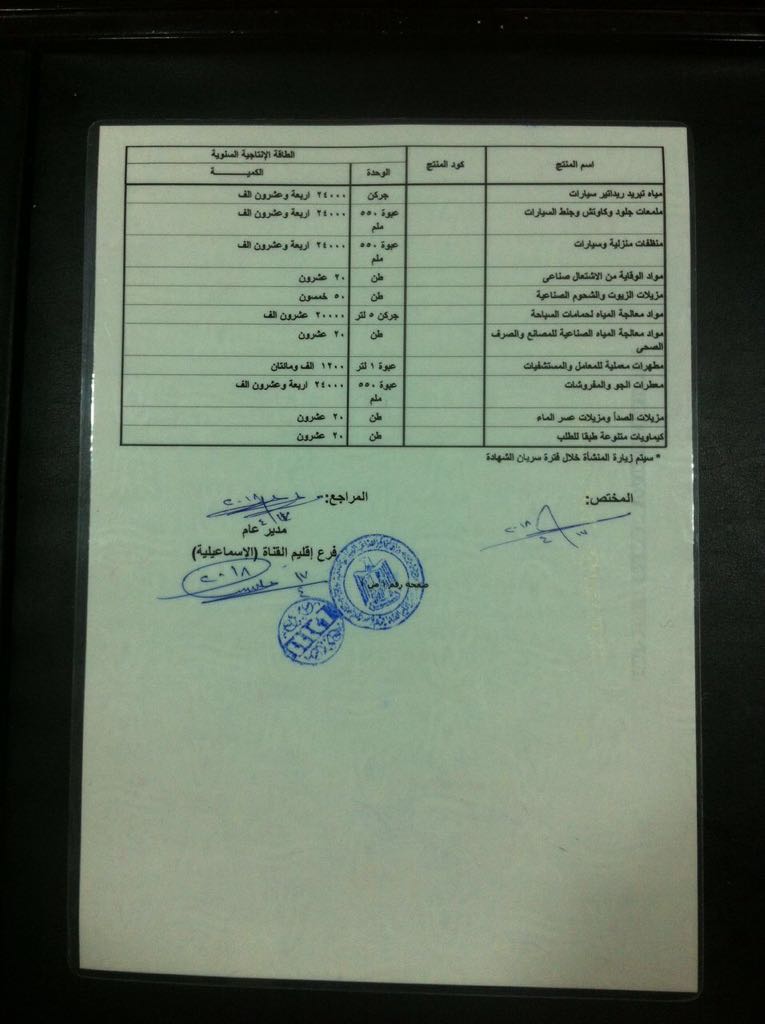 اسم المنتج
كود المنتج
الطاقة الإنتاجية السنوية
الوحدة
الكميـــــــة
مياه تبريد ريداتير سيارات
جركن
٢٤٠٠٠ اربعة وعشرون الف
ملمعات جلود وكاوتش وجنط السيارات
عبوة ٥٥٠
ملم
٢٤٠٠٠ اربعة وعشرون الف
منظفات منزلية وسيارات
عبوة ٥٥٠
ملم
٢٤٠٠٠ اربعة وعشرون الف
مواد الوقاية من الاشتعال صناعى
طن
٢٠ عشرون
مزيلات الزيوت والشحوم الصناعية
طن
٥٠ خمسون
مواد معالجة المياه لحمامات السباحة
جركن ٥ لتر
٢٠٠٠٠ عشرون الف
مواد معالجة المياه الصناعية للمصانع والصرف
الصحى
طن
٢٠ عشرون
مطهرات معملية للمعامل والمستشفيات
عبوة ١ لتر
١٢٠٠ الف ومائتان
معطرات الجو والمفروشات
عبوة ٥٥٠
ملم
٢٤٠٠٠ اربعة وعشرون الف
مزيلات الصدأ ومزيلات عسر الماء
طن
٢٠ عشرون
كيماويات متنوعة طبقا للطلب
طن
٢٠ عشرون
* سيتم زيارة المنشأة خلال فترة سريان الشهادة
المختص:
المراجع:
٢٠١٨
٢٠١٨
مدير عام
فرع إقليم القناة (الإسماعيلية)
٢٠١٨
صفحة رقم ١ من